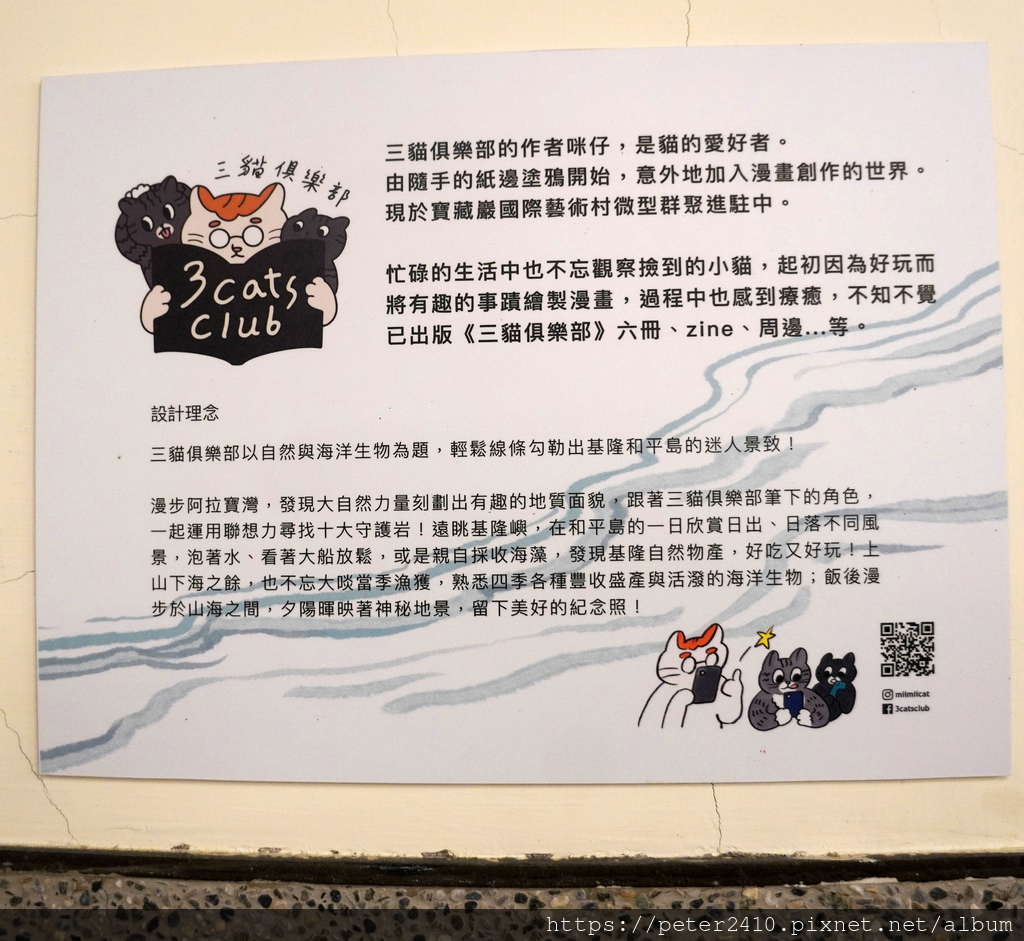 三貓俱樂部
3 cats
club
三貓俱樂部的作者咪仔，是貓的愛好者。
由隨手的紙邊塗鴉開始，意外地加入漫畫創作的世界。
現於寶藏巖國際藝術村微型群聚進駐中。
忙碌的生活中也不忘觀察撿到的小貓，起初因為好玩而
將有趣的事蹟繪製漫畫，過程中也感到療癒，不知不覺
已出版《三貓俱樂部》六冊、zine、周邊...等。
設計理念
三貓俱樂部以自然與海洋生物為題，輕鬆線條勾勒出基隆和平島的迷人景致！
漫步阿拉寶灣，發現大自然力量刻劃出有趣的地質面貌，跟著三貓俱樂部筆下的角色，
一起運用聯想力尋找十大守護岩！遠眺基隆嶼，在和平島的一日欣賞日出、日落不同風
景，泡著水、看著大船放鬆，或是親自採收海藻，發現基隆自然物產，好吃又好玩！上
山下海之餘，也不忘大啖當季漁獲，熟悉四季各種豐收盛產與活潑的海洋生物；飯後漫
步於山海之間，夕陽暉映著神秘地景，留下美好的紀念照！
miimiicat
3catsclub
https://peter2410.pixnet.net/album